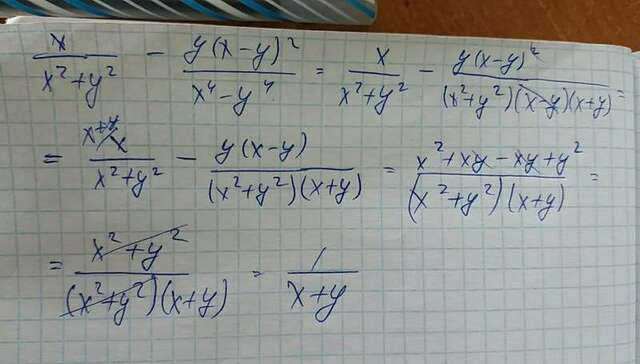 x/(x²+y²) - y(x-y)²/(x⁴-y⁴) = x/(x²+y²) - y(x-y)²/((x²+y²)(x-y)(x+y)) =
= x+y/ x/(x²+y²) - y(x-y)/((x²+y²)(x+y)) = (x²+xy-xy+y²)/((x²+y²)(x+y)) =
= (x²+y²)/((x²+y²)(x+y)) = 1/(x+y)